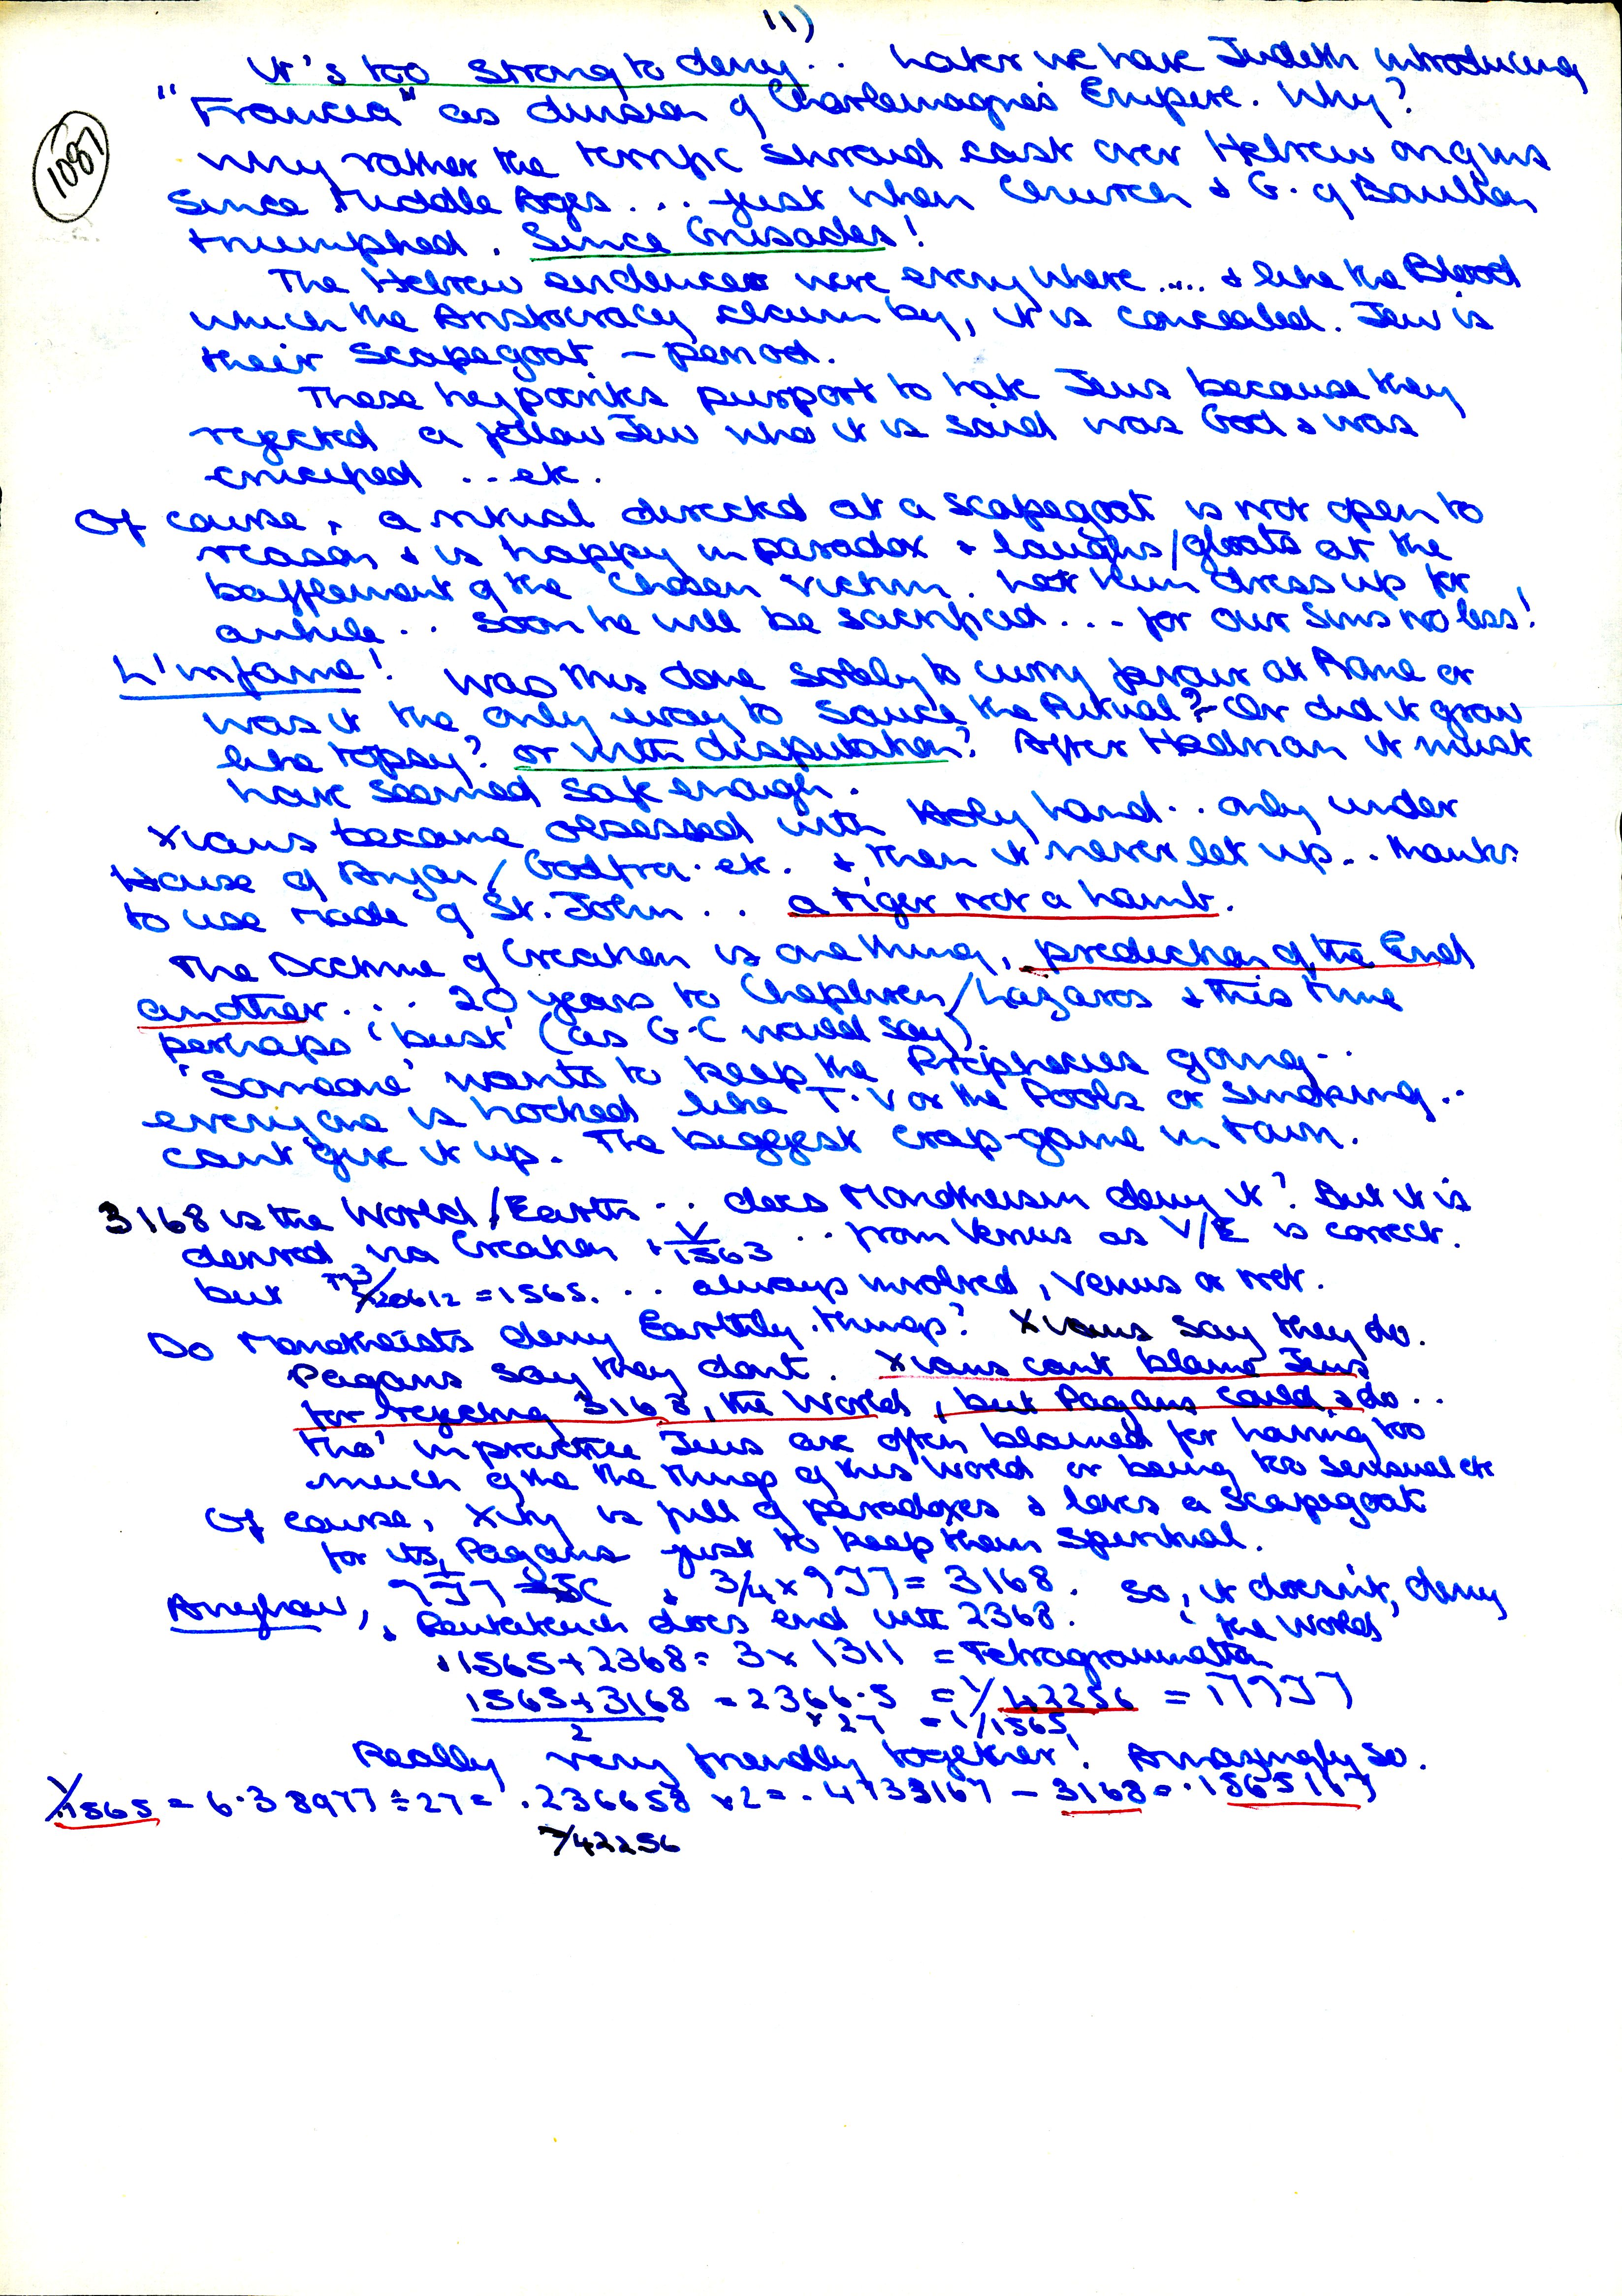 11)
It's too strong to deny.. Later we have Judith introducing
"Francia" as division of Charlemagne's Empire. Why?
1087
Why rather the terrific shroud cast over Hebrew origins
Since Middle Ages... just when Church & G. of Bouillon
triumphed. Since Crusades!
The Hebrew evidences were everywhere.... & like the Blood
which the Aristocracy claim by, it is concealed. Jew is
their Scapegoat - period.
These hypocrites purport to hate Jews because they
rejected a fellow Jew who it is said was God & was
crucified ...etc.
Of course, a ritual directed at a scapegoat is not open to
reason & is happy in paradox & laughs/gloats at the
bafflement of the chosen victim. Let him dress up for
awhile.. soon he will be sacrificed.... for our sins no less!
L'infame! Was this done solely to curry favour at Rome or
was it the only way to sauce the Ritual? Or did it grow
like topsy? or with disputation? After Hadrian it must
have seemed safe enough.
Xians became obsessed with Holy Land.. only under
House of Anjou/Godfroi. etc. & then it never let up.. thanks
to use made of St. John... a tiger not a Lamb.
The Doctrine of Creation is one thing, prediction of the End
another.... 20 years to Chephren/Lazaros & this time
perhaps 'bust' (as G-C would say).
'Someone' wants to keep the Prophecies going..
everyone is hooked like T.V or the Pools or Smoking..
cant give it up. The biggest crap-game in town.
3168 is the World/Earth.. does Monotheism deny it? But it is
derived via Creation & V/1563 .. from Venus as V/E is correct.
but /20612 = 1565. .. always involved, Venus or not.
Do Monotheists deny Earthly things? Xians say they do.
Pagans say they dont. Xians cant blame Jews
for rejecting 3168, the World, but Pagans could & do..
tho' in practice Jews are often blamed for having too
much of the the things of this World or being too sensual etc
Of course, Xity is full of paradoxes & loves a Scapegoat
for its Pagans just to keep them Spiritual.
Anyhow, & 3/4 x 977 = 3168. So, it doesn't deny
& Pentateuch does end with 2368. the World
& 1565 + 2368 = 3 x 1311 = Tetragrammaton
1565 + 3168 = 2366.5 = 1/42256 = 17977
2 x 27 = 1/1565
Really very friendly together! Amazingly so.
1/.1565 = 6.38977 ÷ 27 = .236658 x 2 = .4733167 - 3168 = .1565167
1/42256